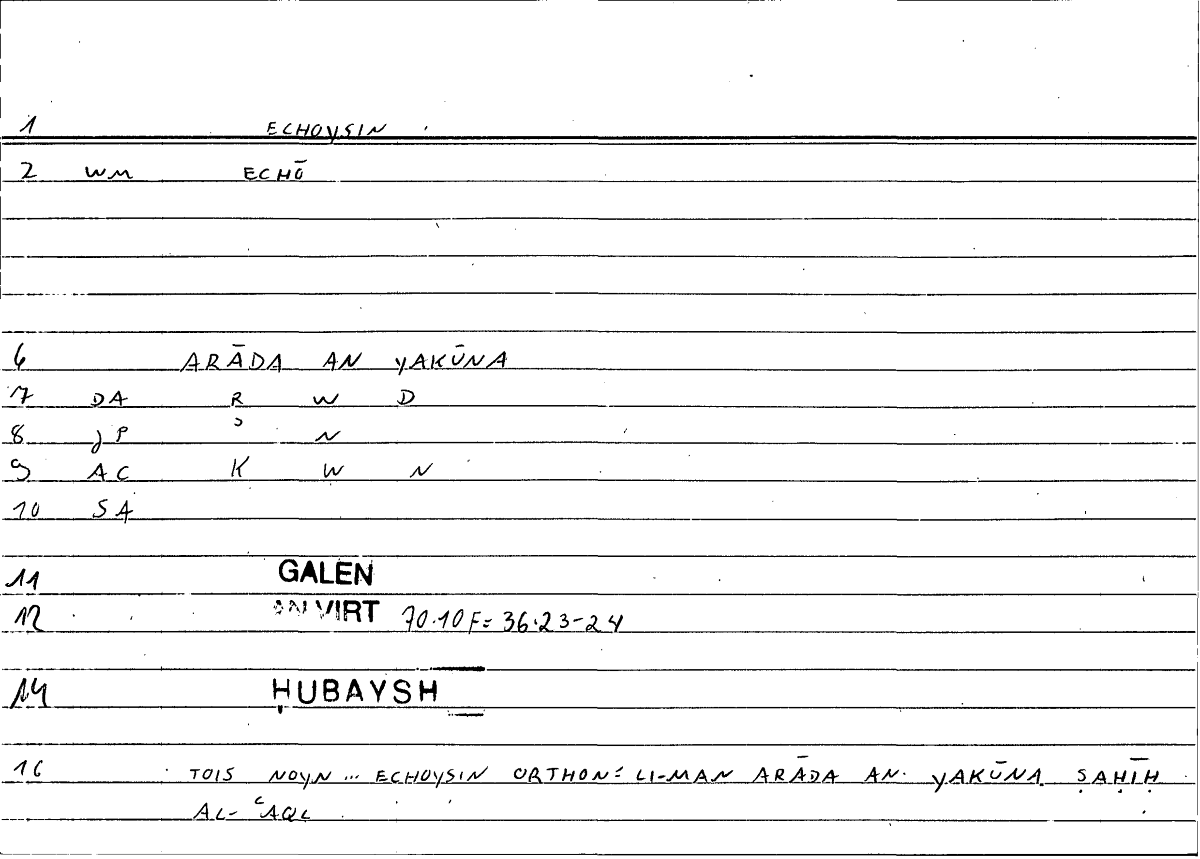 1 ECHOYSIN
2 WM ECHŌ
6 ARĀDA AN YAKŪNA
7 DA R W D
8 JP ʾ N
9 AC K W N
10 SA
11 GALEN
12 AN VIRT 70.10F = 36.23-24
14 ḤUBAYSH
16 TOIS NOYN ... ECHOYSIN ORTHON = LI-MAN ARĀDA AN YAKŪNA ṢAḤĪḤ
AL-ʿAQL